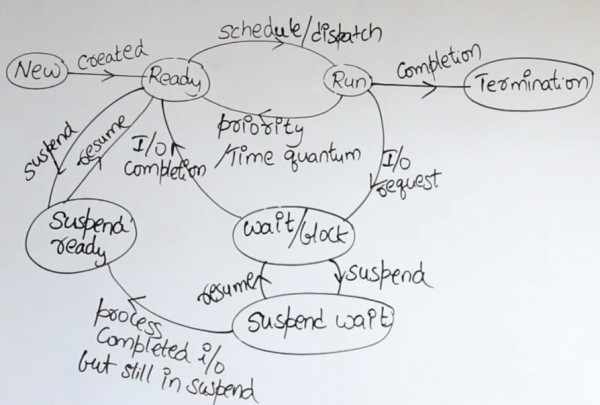 schedule/dispatch
New
created
Ready
Run
Completion
Termination
priority
/Time quantum
suspend
resume
I/O
completion
I/O
request
Suspend
ready
wait/block
resume
suspend
Suspend wait
process
Completed i/o
but still in suspend